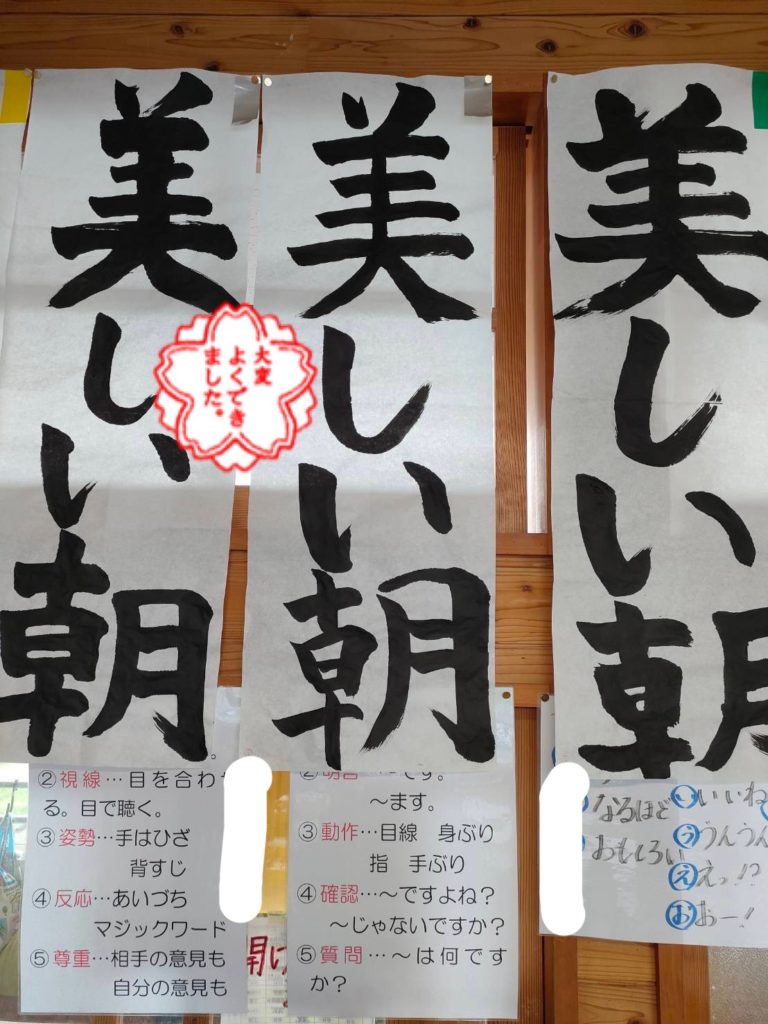 美しい朝
美しい朝
美しい朝
大変
よくでき
ました。
②視線…目を合わせ
る。目で聴く。
③姿勢…手はひざ
背すじ
④反応…あいづち
マジックワード
⑤尊重…相手の意見も
自分の意見も
開け
②明言…～です。
～ます。
③動作…目線 身ぶり
指 手ぶり
④確認…～ですよね？
～じゃないですか？
⑤質問…～は何です
か？
なるほど
おもしろい
いいね
うんうん
えっ!?
おー！